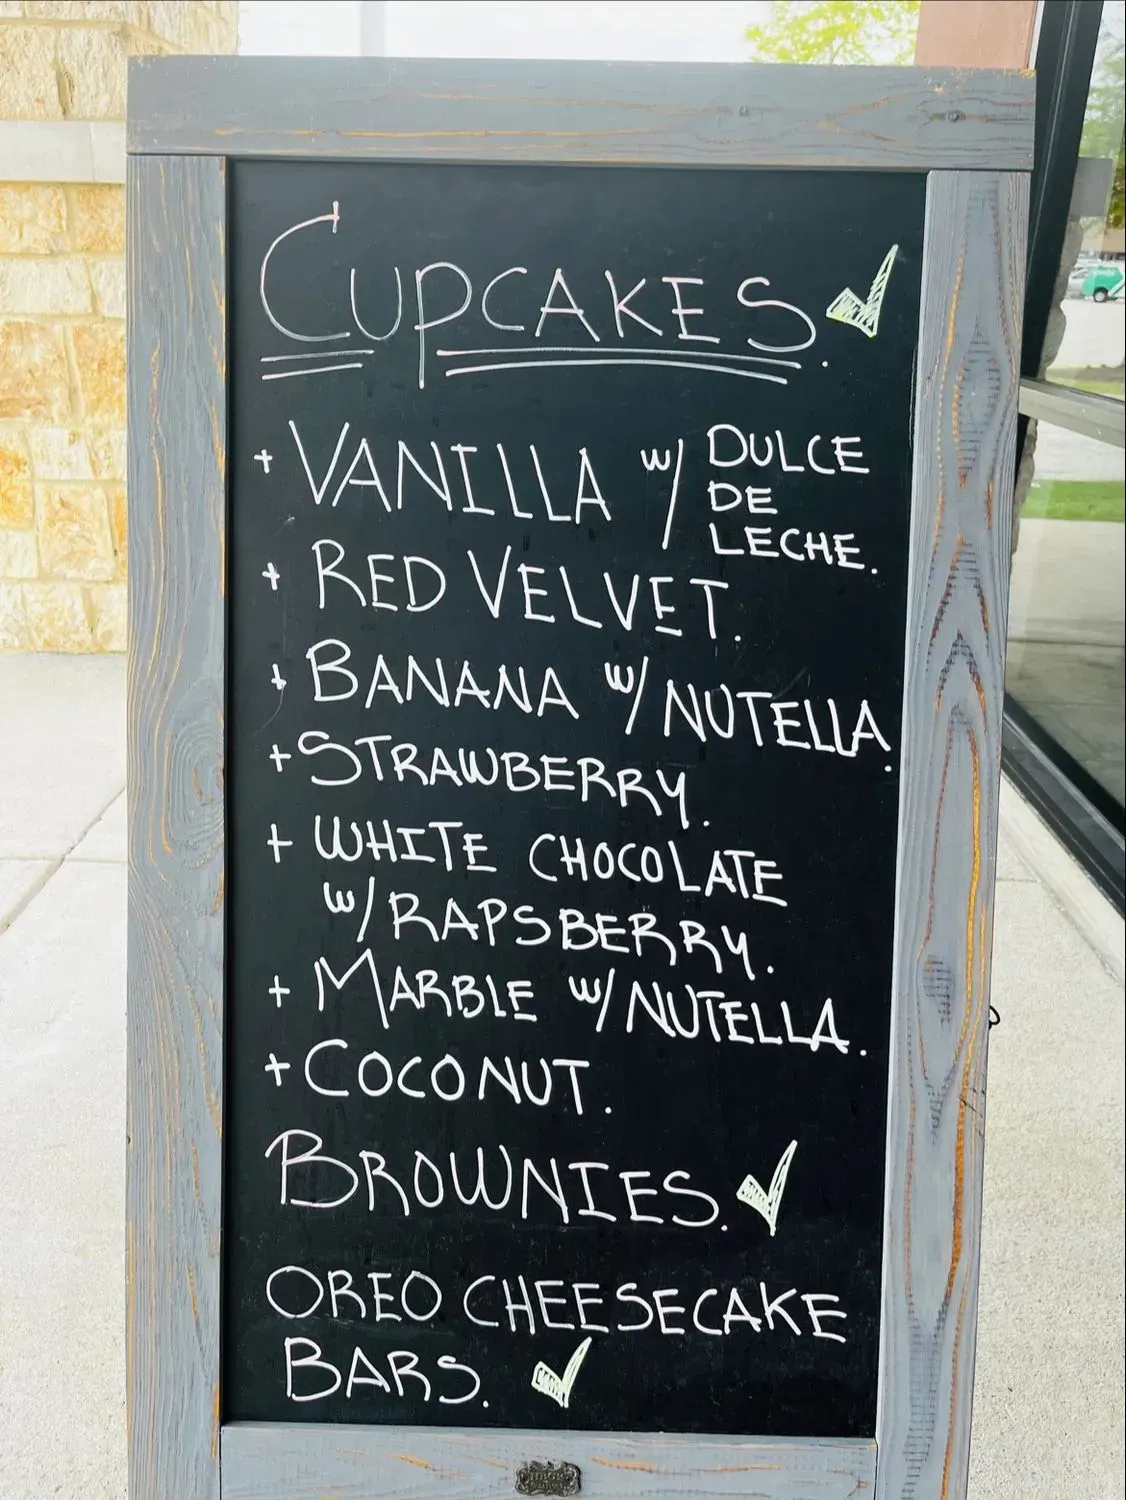 CUPCAKES.
+ VANILLA w/ DULCE
DE
LECHE.
+ RED VELVET.
+ BANANA w/ NUTELLA.
+ STRAWBERRY.
+ WHITE CHOCOLATE
w/ RAPSBERRY.
+ MARBLE w/ NUTELLA.
+ COCONUT.
BROWNIES.
OREO CHEESECAKE
BARS.